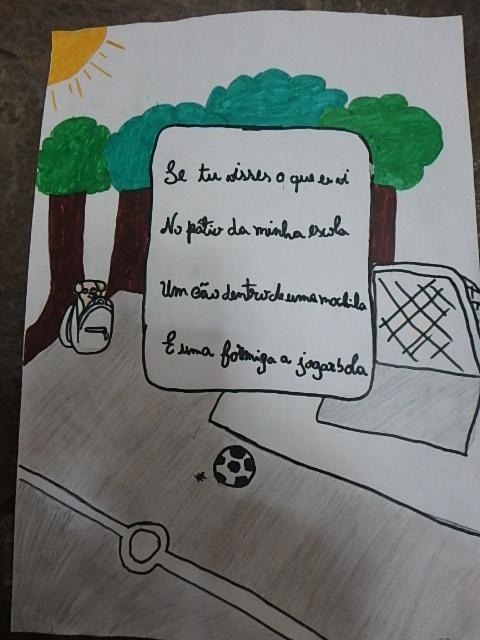 Se tu visses o que eu vi
No pátio da minha escola
Um cão dentro de uma mochila
E uma formiga a jogar bola